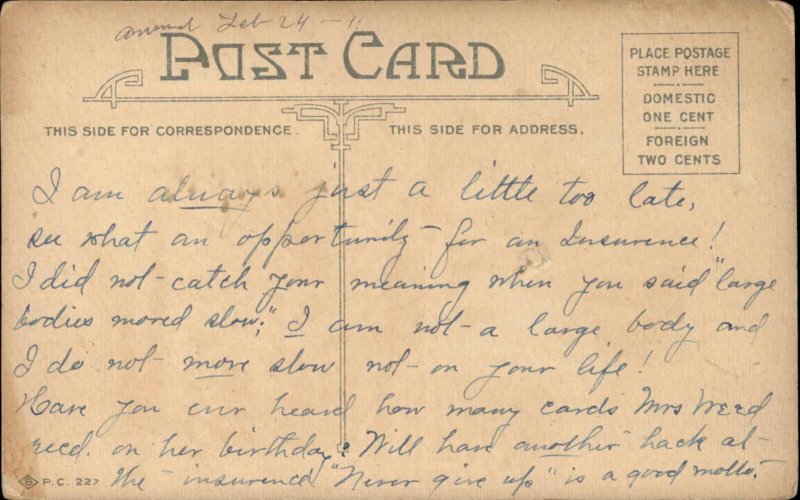 answered Feb 24 - 11
POST CARD
PLACE POSTAGE
STAMP HERE
DOMESTIC
ONE CENT
FOREIGN
TWO CENTS
THIS SIDE FOR CORRESPONDENCE.
THIS SIDE FOR ADDRESS.
I am always just a little too late,
see what an opportunity for an Insurence!
I did not catch your meaning when you said "large
bodies moved slow;" I am not a large body and
I do not move slow not on your life!
Have you ever heard how many cards Mrs Weed
recd. on her birthday? Will have another hack at
the insurence "Never give up" is a good motto.
P.C. 227